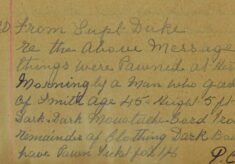 20 From Supt Duke
re the above Message
things were Pawned at
Morning by a Man who gave
of Smith age 45 Height 5 ft
Dark. Dark Moustache
remainder of Clothing Dark
have Pawn Tickt for